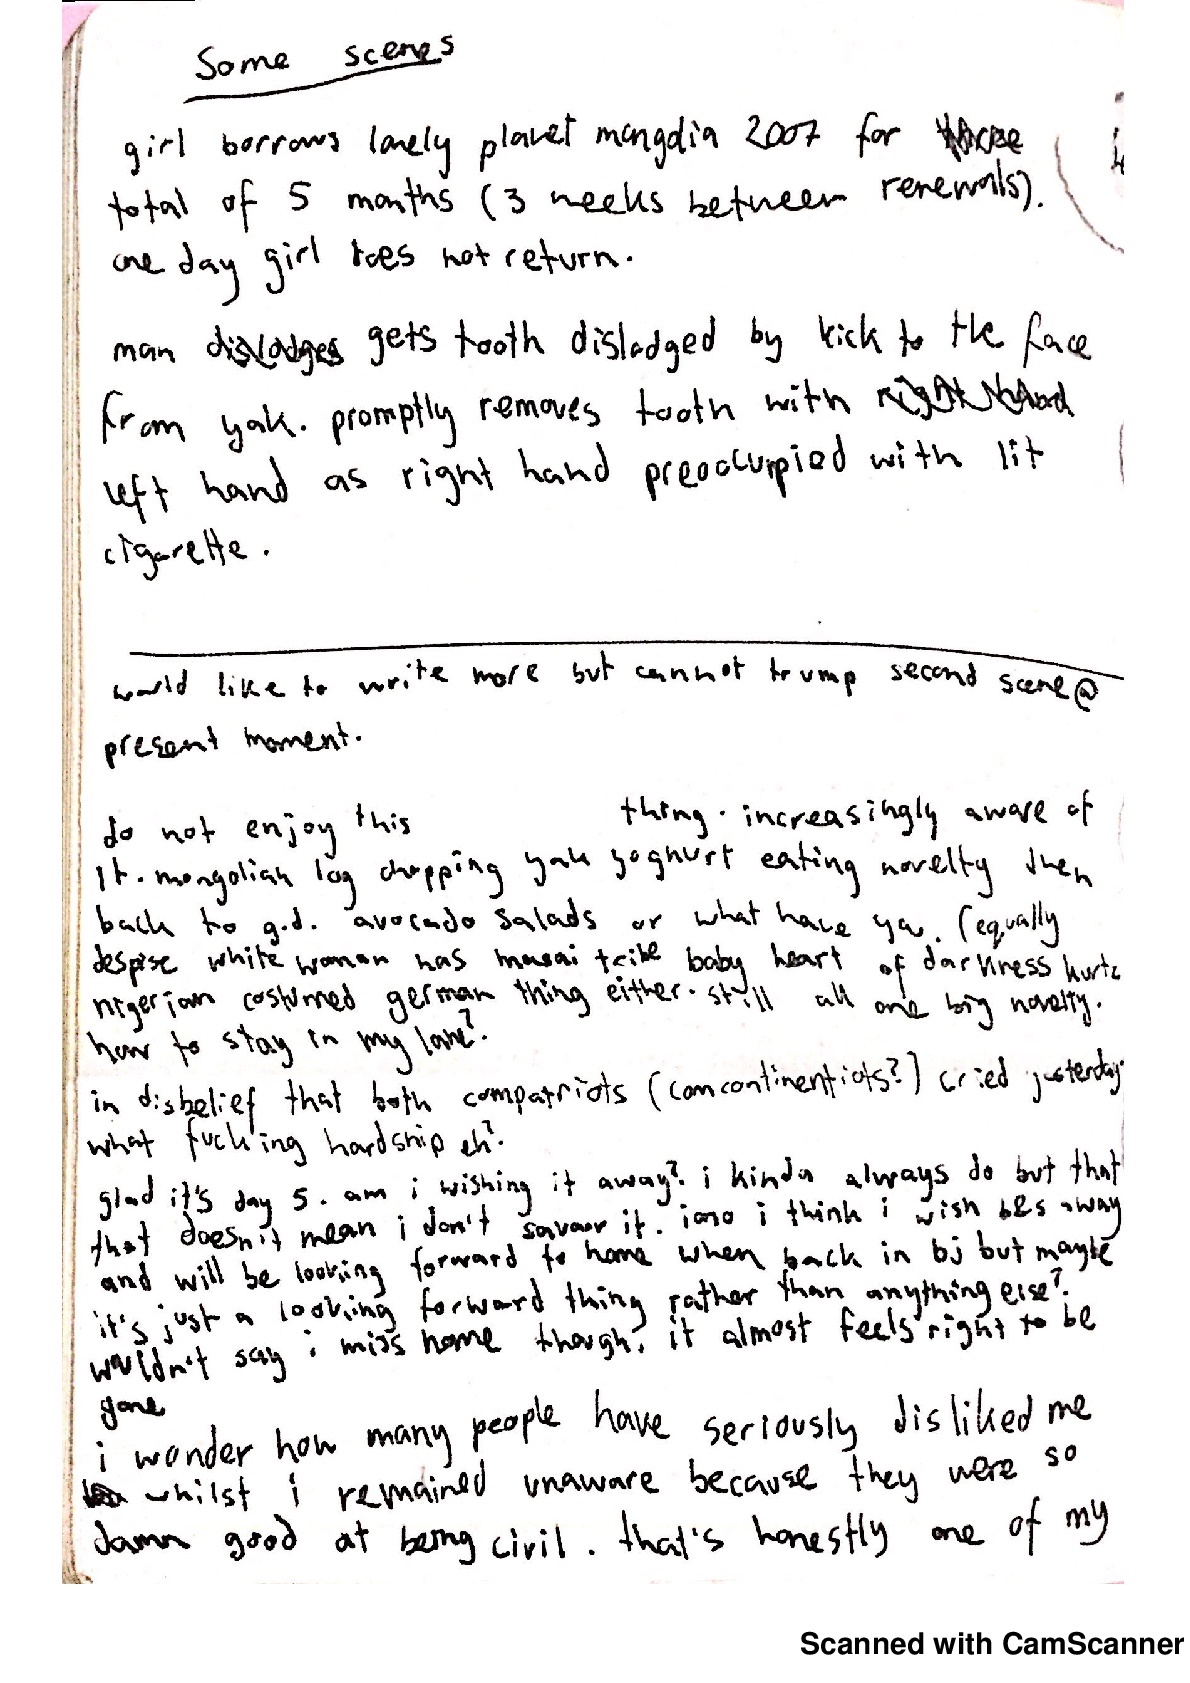 Some scenes
girl borrows lonely planet mongolia 2007 for
total of 5 months (3 weeks between renewals).
one day girl does not return.
man dislodges gets tooth dislodged by kick to the face
from yak. promptly removes tooth with right hand
left hand as right hand preoccupied with lit
cigarette.
would like to write more but cannot trump second scene @
present moment.
do not enjoy this thing. increasingly aware of
it. mongolian log chopping yak yoghurt eating novelty then
back to g.d. avocado salads or what have ya. (equally
despise white woman has masai tribe baby heart of darkness kurtz
nigerian costumed german thing either. still all one big novelty.
how to stay in my lane?
in disbelief that both compatriots (comcontinentiots?) cried yesterday
what fucking hardship eh?
glad it's day 5. am i wishing it away? i kinda always do but that
that doesn't mean i don't savour it. i think i wish away
and will be looking forward to home when back in bj but maybe
it's just a looking forward thing rather than anything else?
wouldn't say i miss home though. it almost feels right to be
gone
i wonder how many people have seriously disliked me
whilst i remained unaware because they were so
damn good at being civil. that's honestly one of my
Scanned with CamScanner